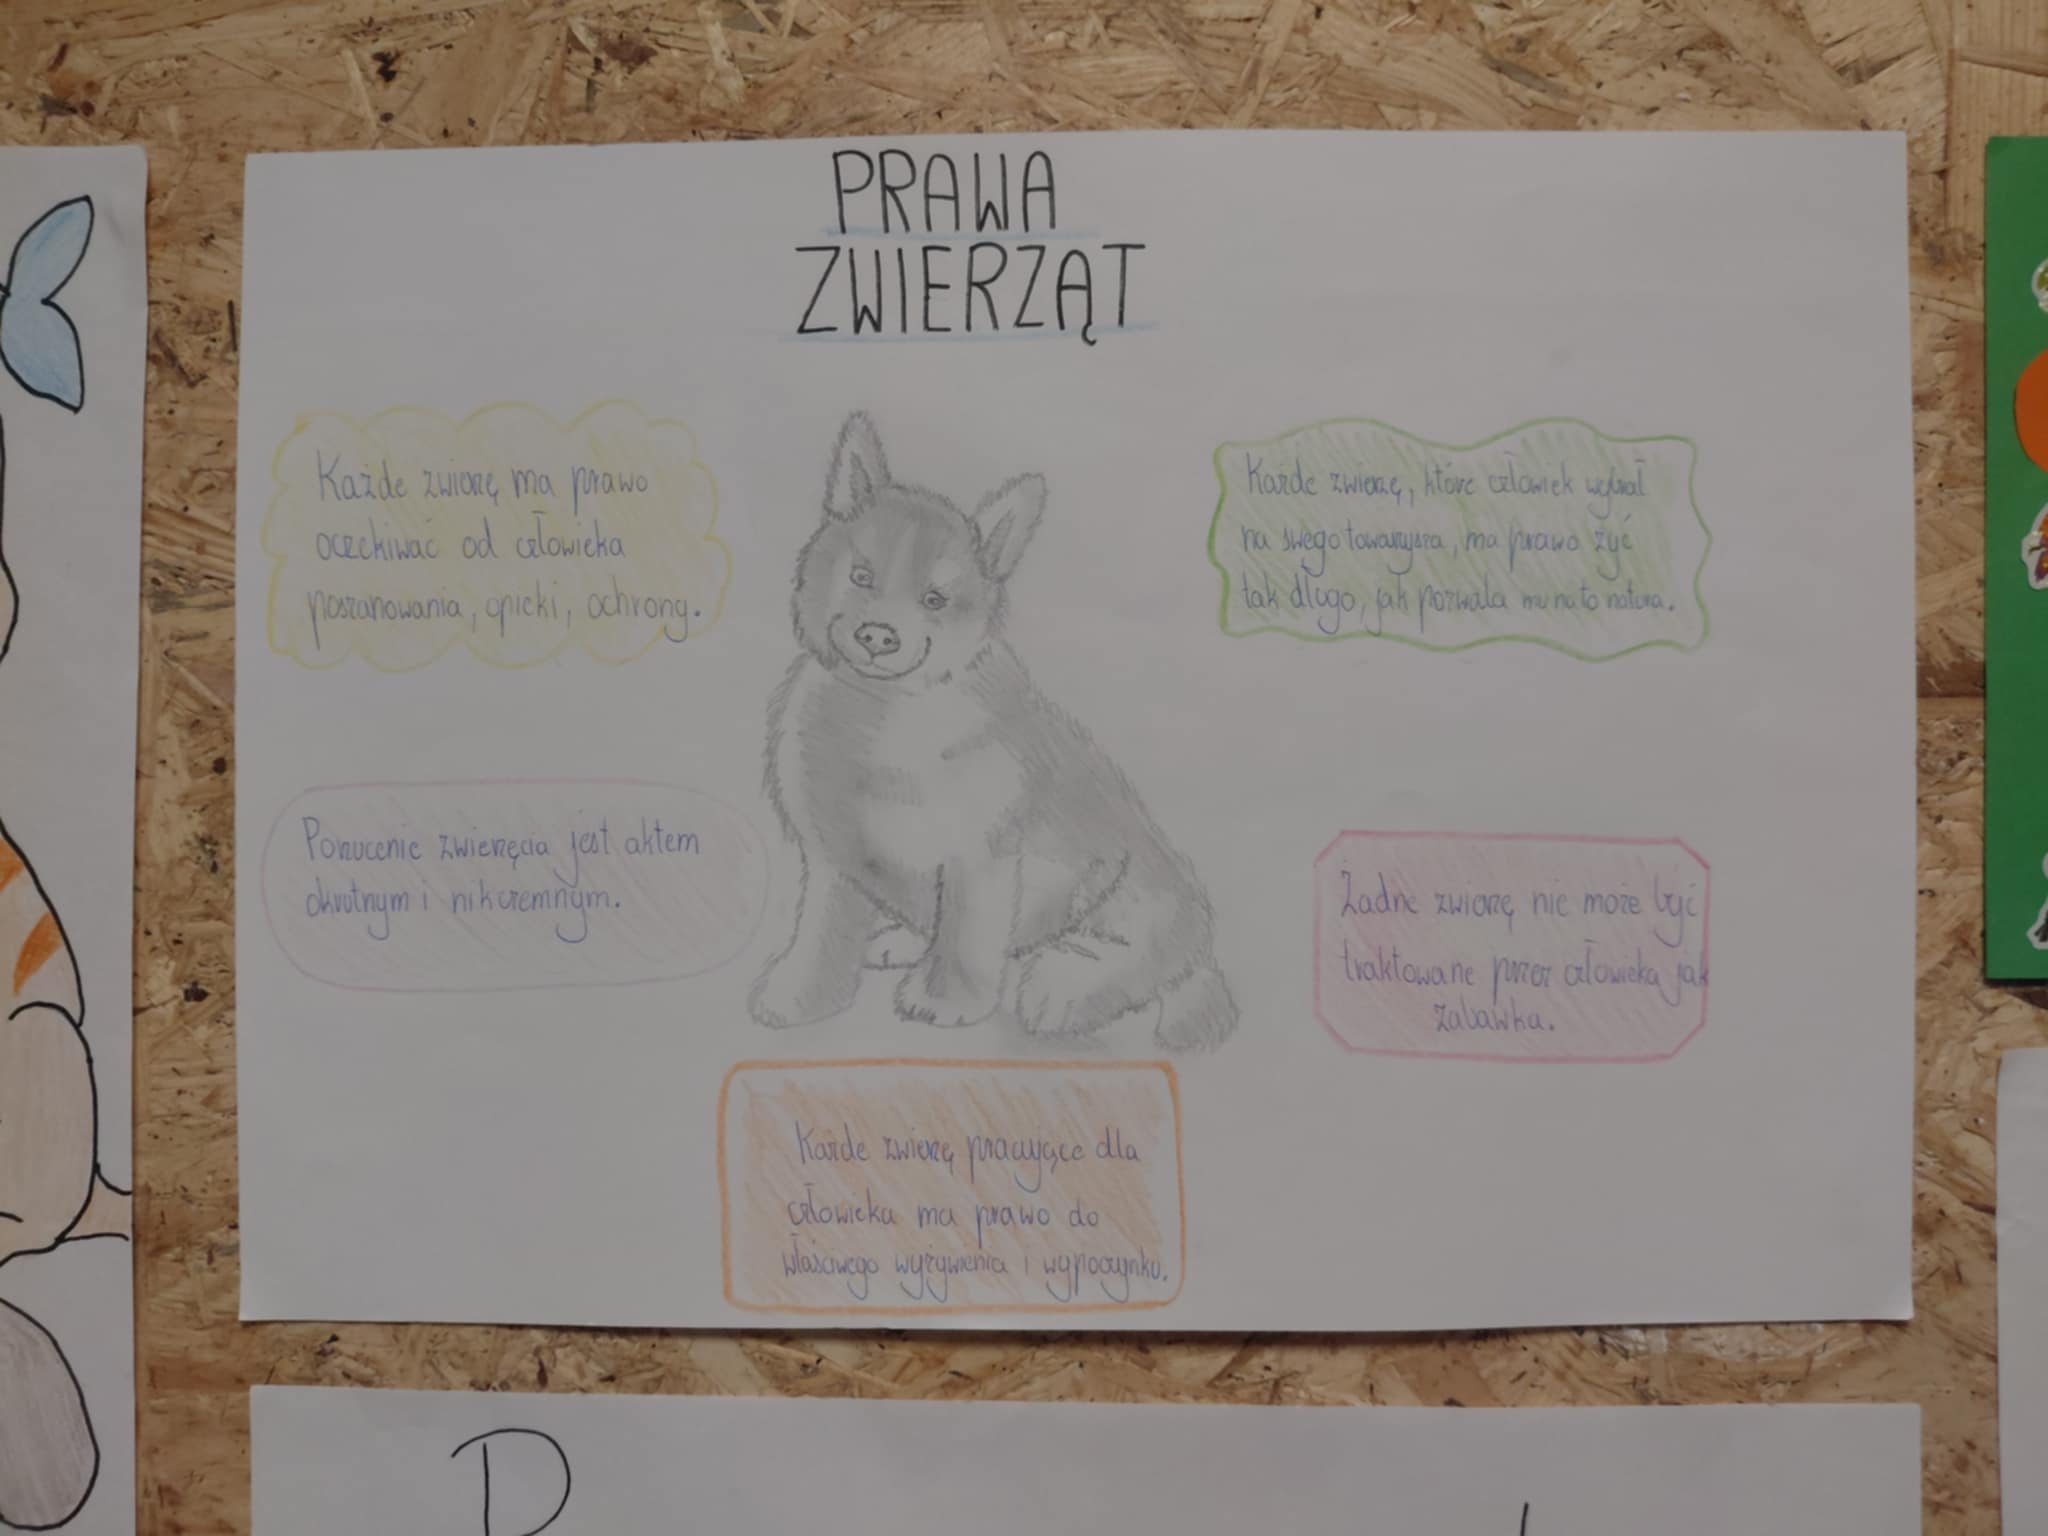 PRAWA
ZWIERZĄT
Każde zwierzę ma prawo
oczekiwać od człowieka
poszanowania, opieki, ochrony.
Każde zwierzę, które człowiek wybrał
na swego towarzysza, ma prawo żyć
tak długo, jak pozwala mu na to natura.
Porzucenie zwierzęcia jest aktem
okrutnym i nikczemnym.
Żadne zwierzę nie może być
traktowane przez człowieka jak
zabawka.
Każde zwierzę pracujące dla
człowieka ma prawo do
właściwego wyżywienia i wypoczynku.
P